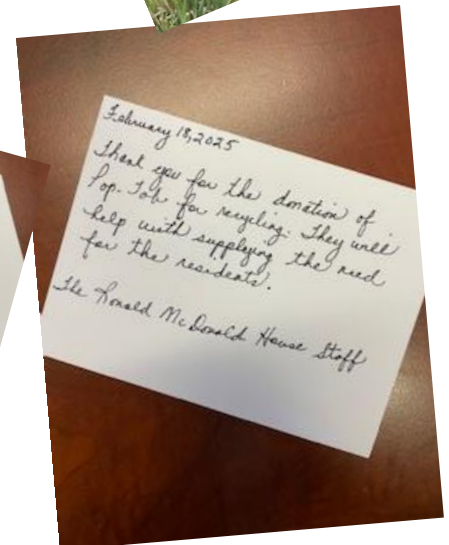 February 18, 2025
Thank you for the donation of
Pop. Tab for recycling. They will
help with supplying the need
for the residents.
The Ronald McDonald House Staff